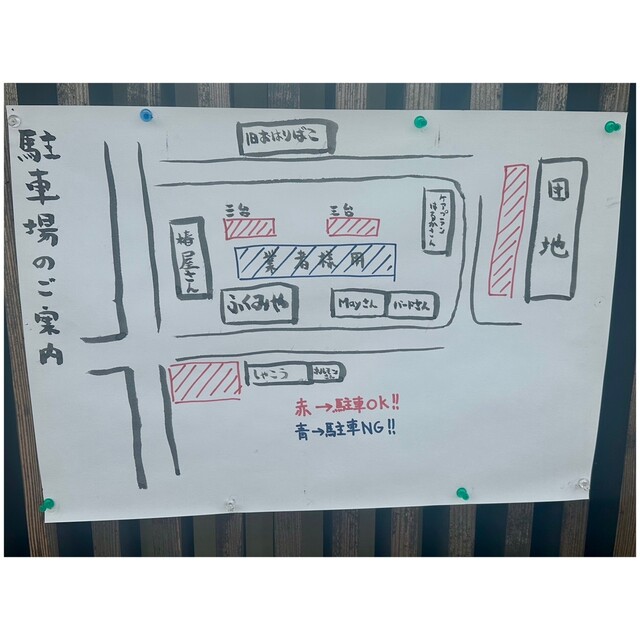 駐車場のご案内
旧おはりばこ
三台
三台
ケアプラン
はるかさん
団地
椿屋さん
業者様用
ふくみや
Mayさん
バードさん
しゃこう
赤→駐車OK!!
青→駐車NG!!